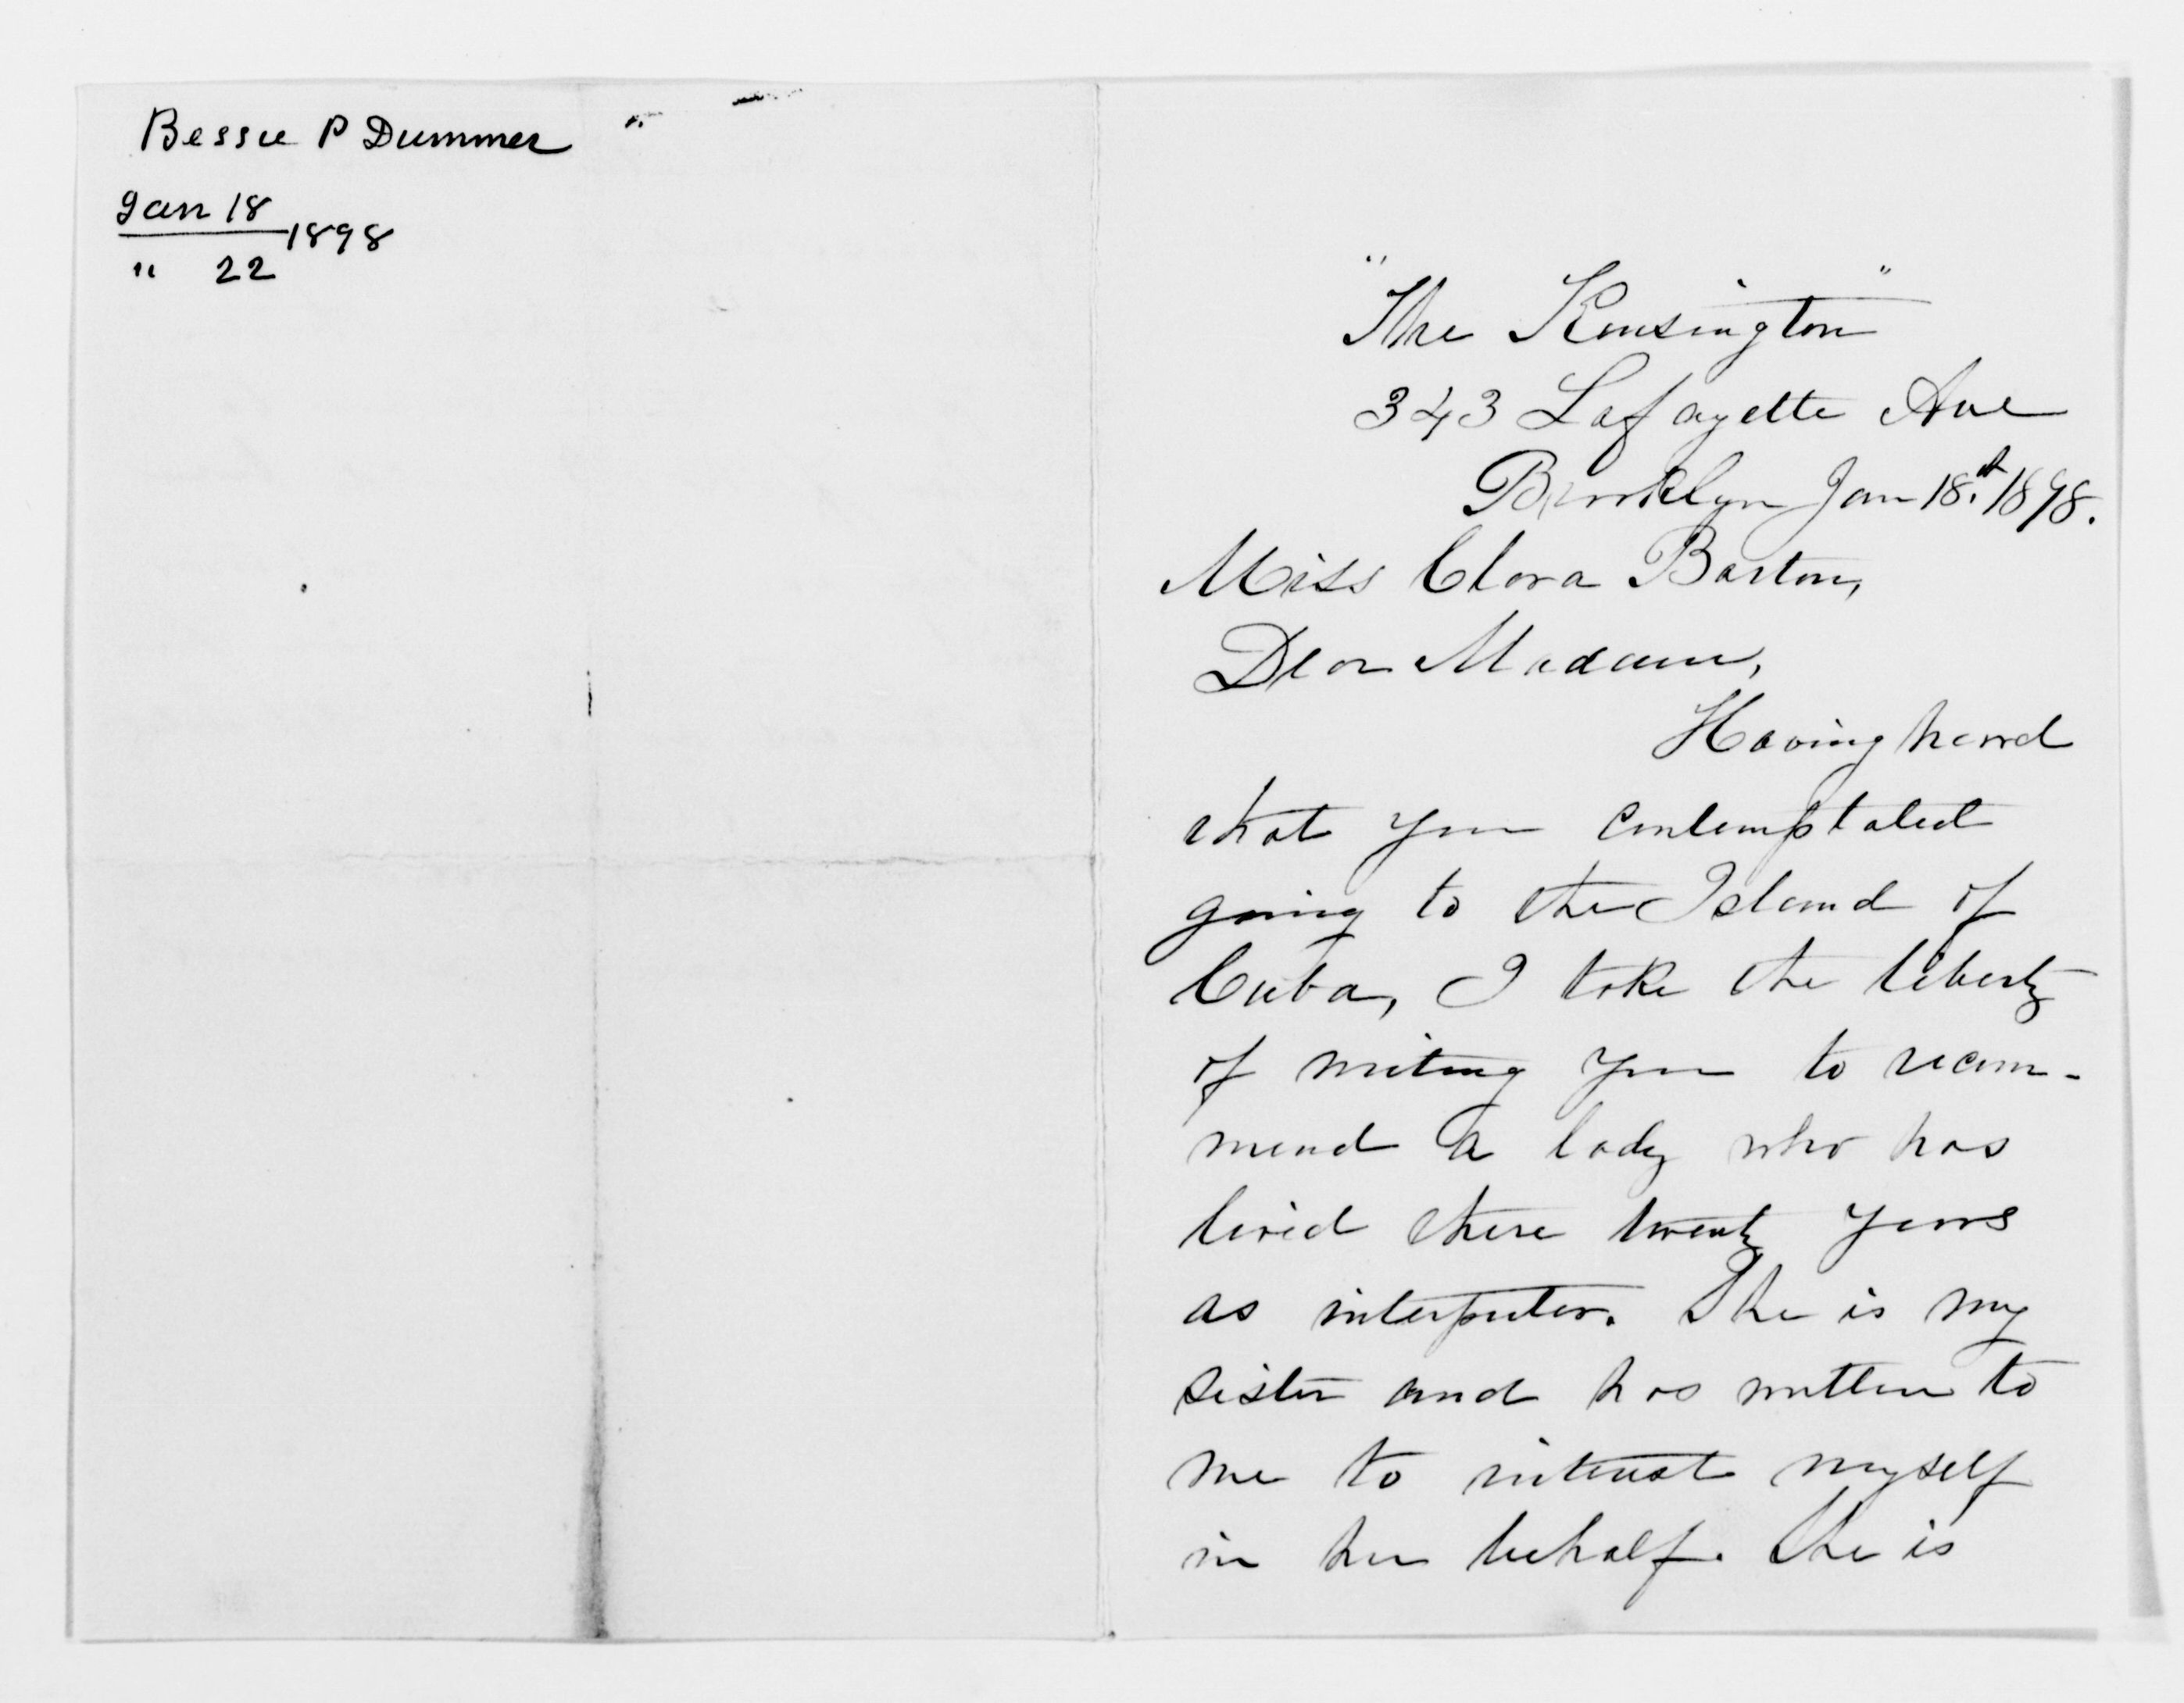 Bessie P Dummer
Jan 18
1898
" 22
"The Kensington"
343 Lafayette Ave
Brooklyn Jan 18th 1898.
Miss Clara Barton,
Dear Madam,
Having heard
that you contemplated
going to the Island of
Cuba, I take the liberty
of writing you to recom-
mend a lady who has
lived there twenty years
as interpreter. She is my
sister and has written to
me to interest myself
in her behalf. She is